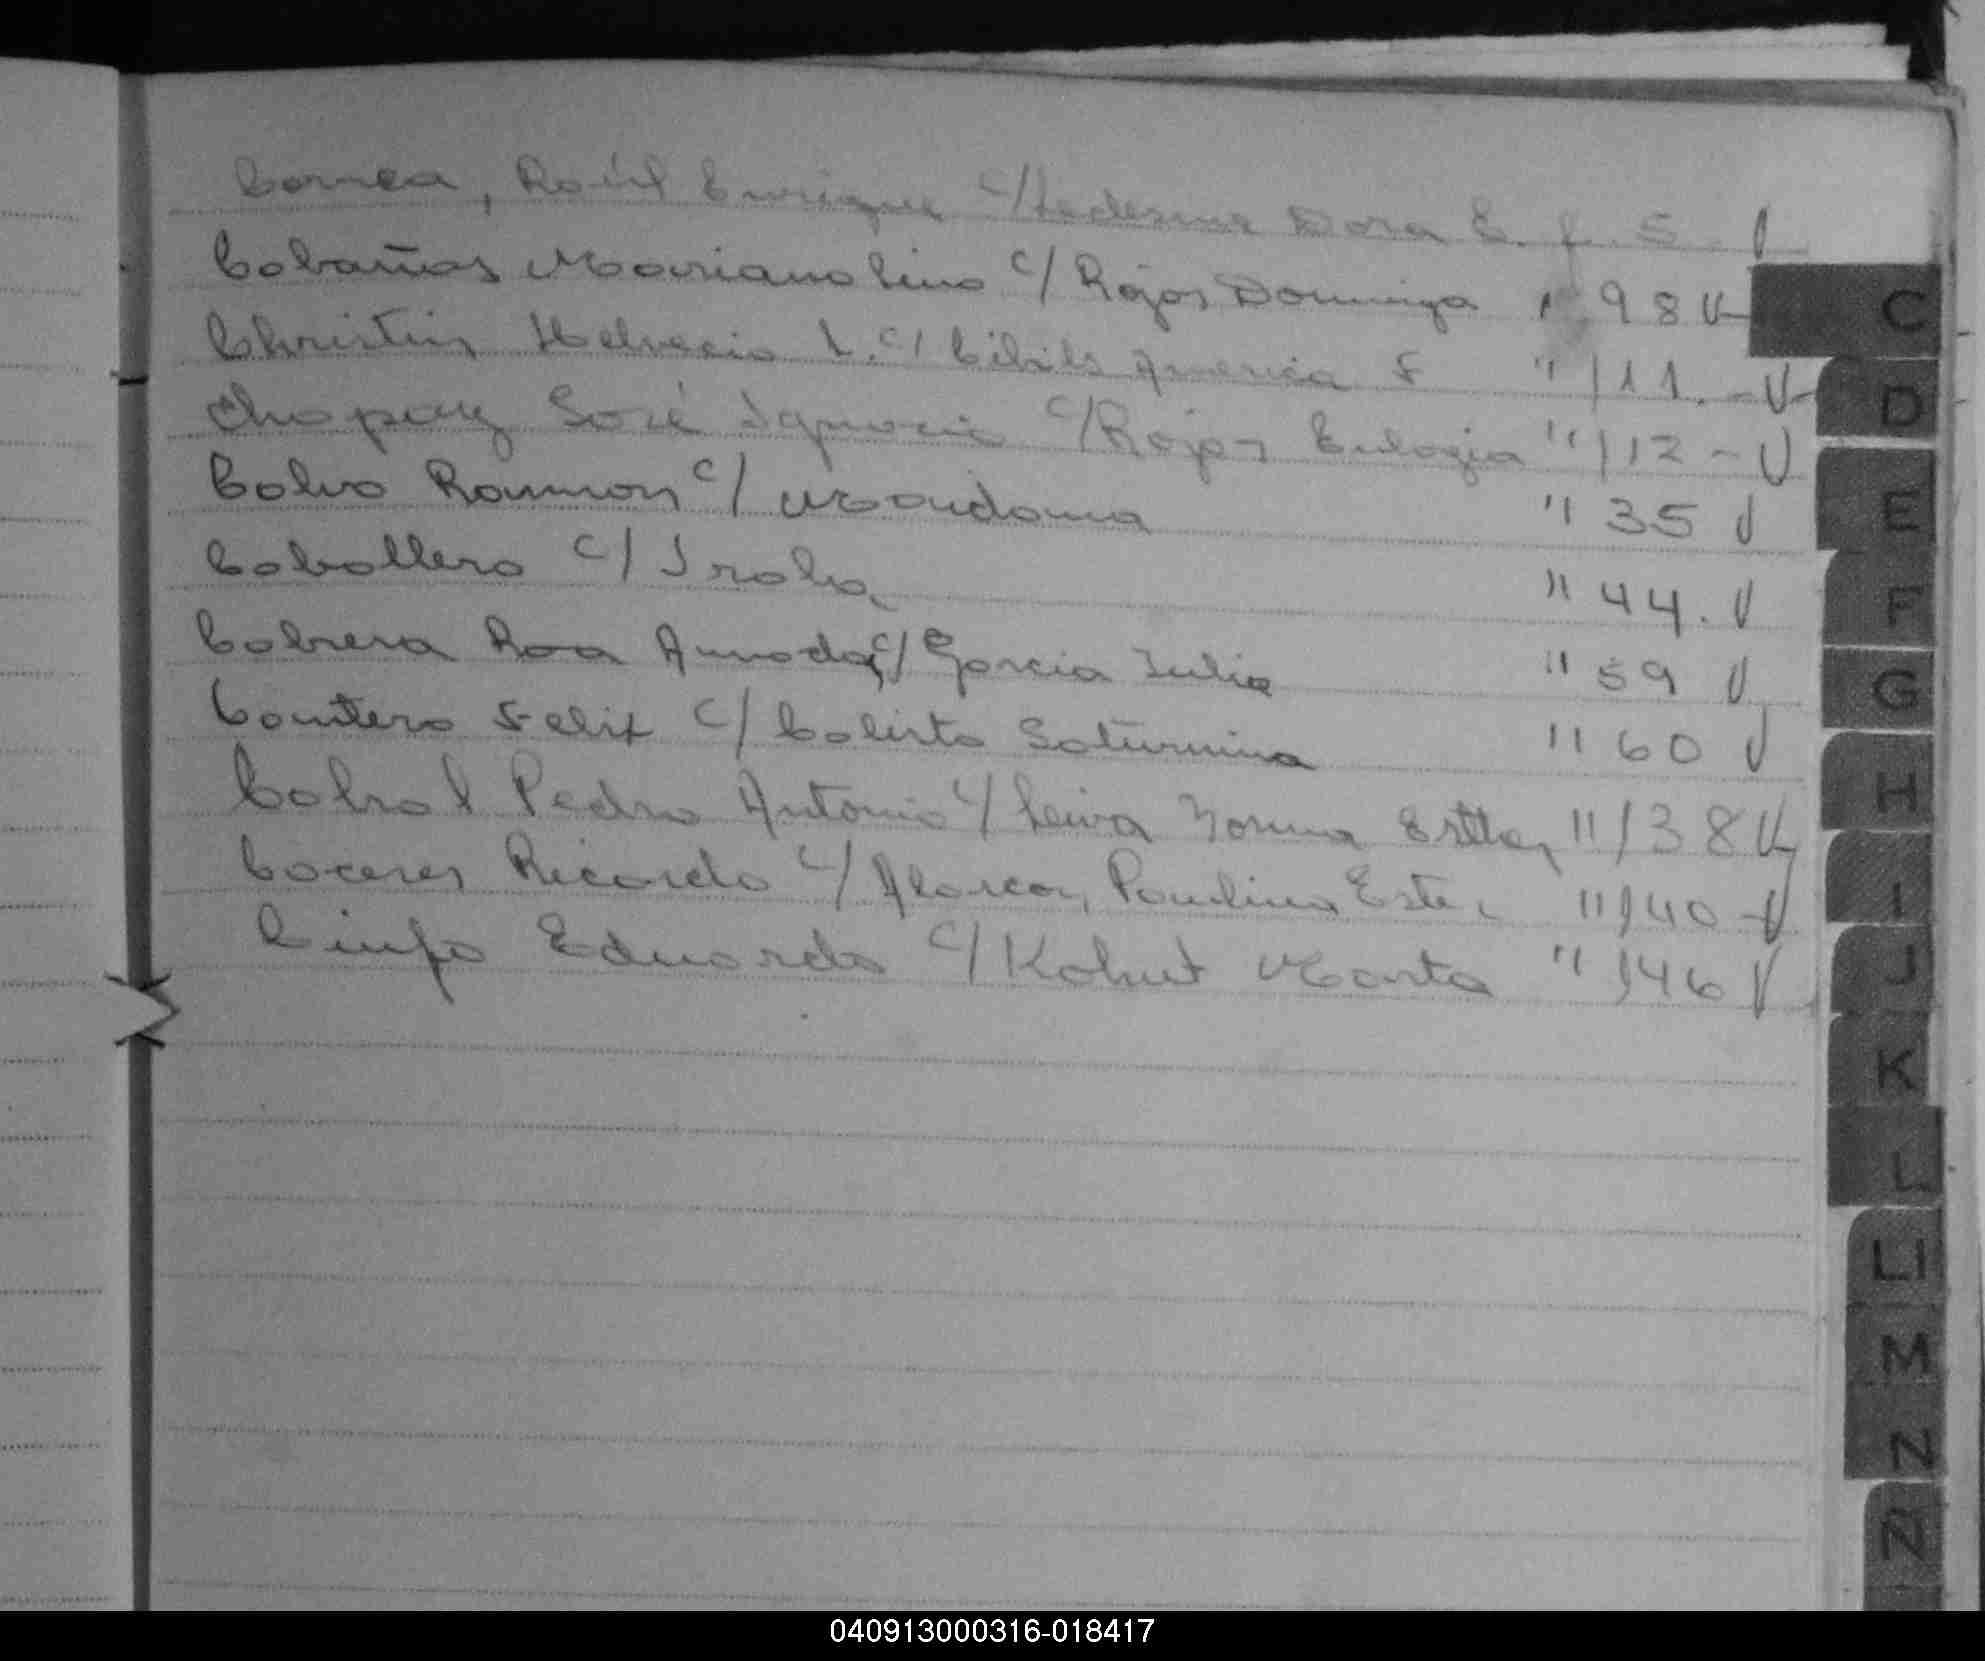 Correa, Raúl Enrique c/ Ledesma Dora E. f. 5 - V
Cabañas Mariano Lino c/ Rojas Dominga " 98 V
Christin Helvecio L. c/ Cibils America F " 111. - V
Chapay José Ignacio c/ Rojas Eulogia " 112 - V
Calvo Ramon c/ Maidana " 35 V
Caballero c/ Irala " 44. V
Cabrera Roa Amada c/ Garcia Julia " 59 V
Cantero Felix c/ Calisto Saturnina " 60 V
Cabral Pedro Antonio c/ Leiva Norma Esther " 138 V
Caceres Ricardo c/ Alarcon Paulina Ester " 140 - V
Eduardo c/ Kohut Marta " 146 V
C
D
E
F
G
H
I
J
K
L
Ll
M
N
Ñ
040913000316-018417